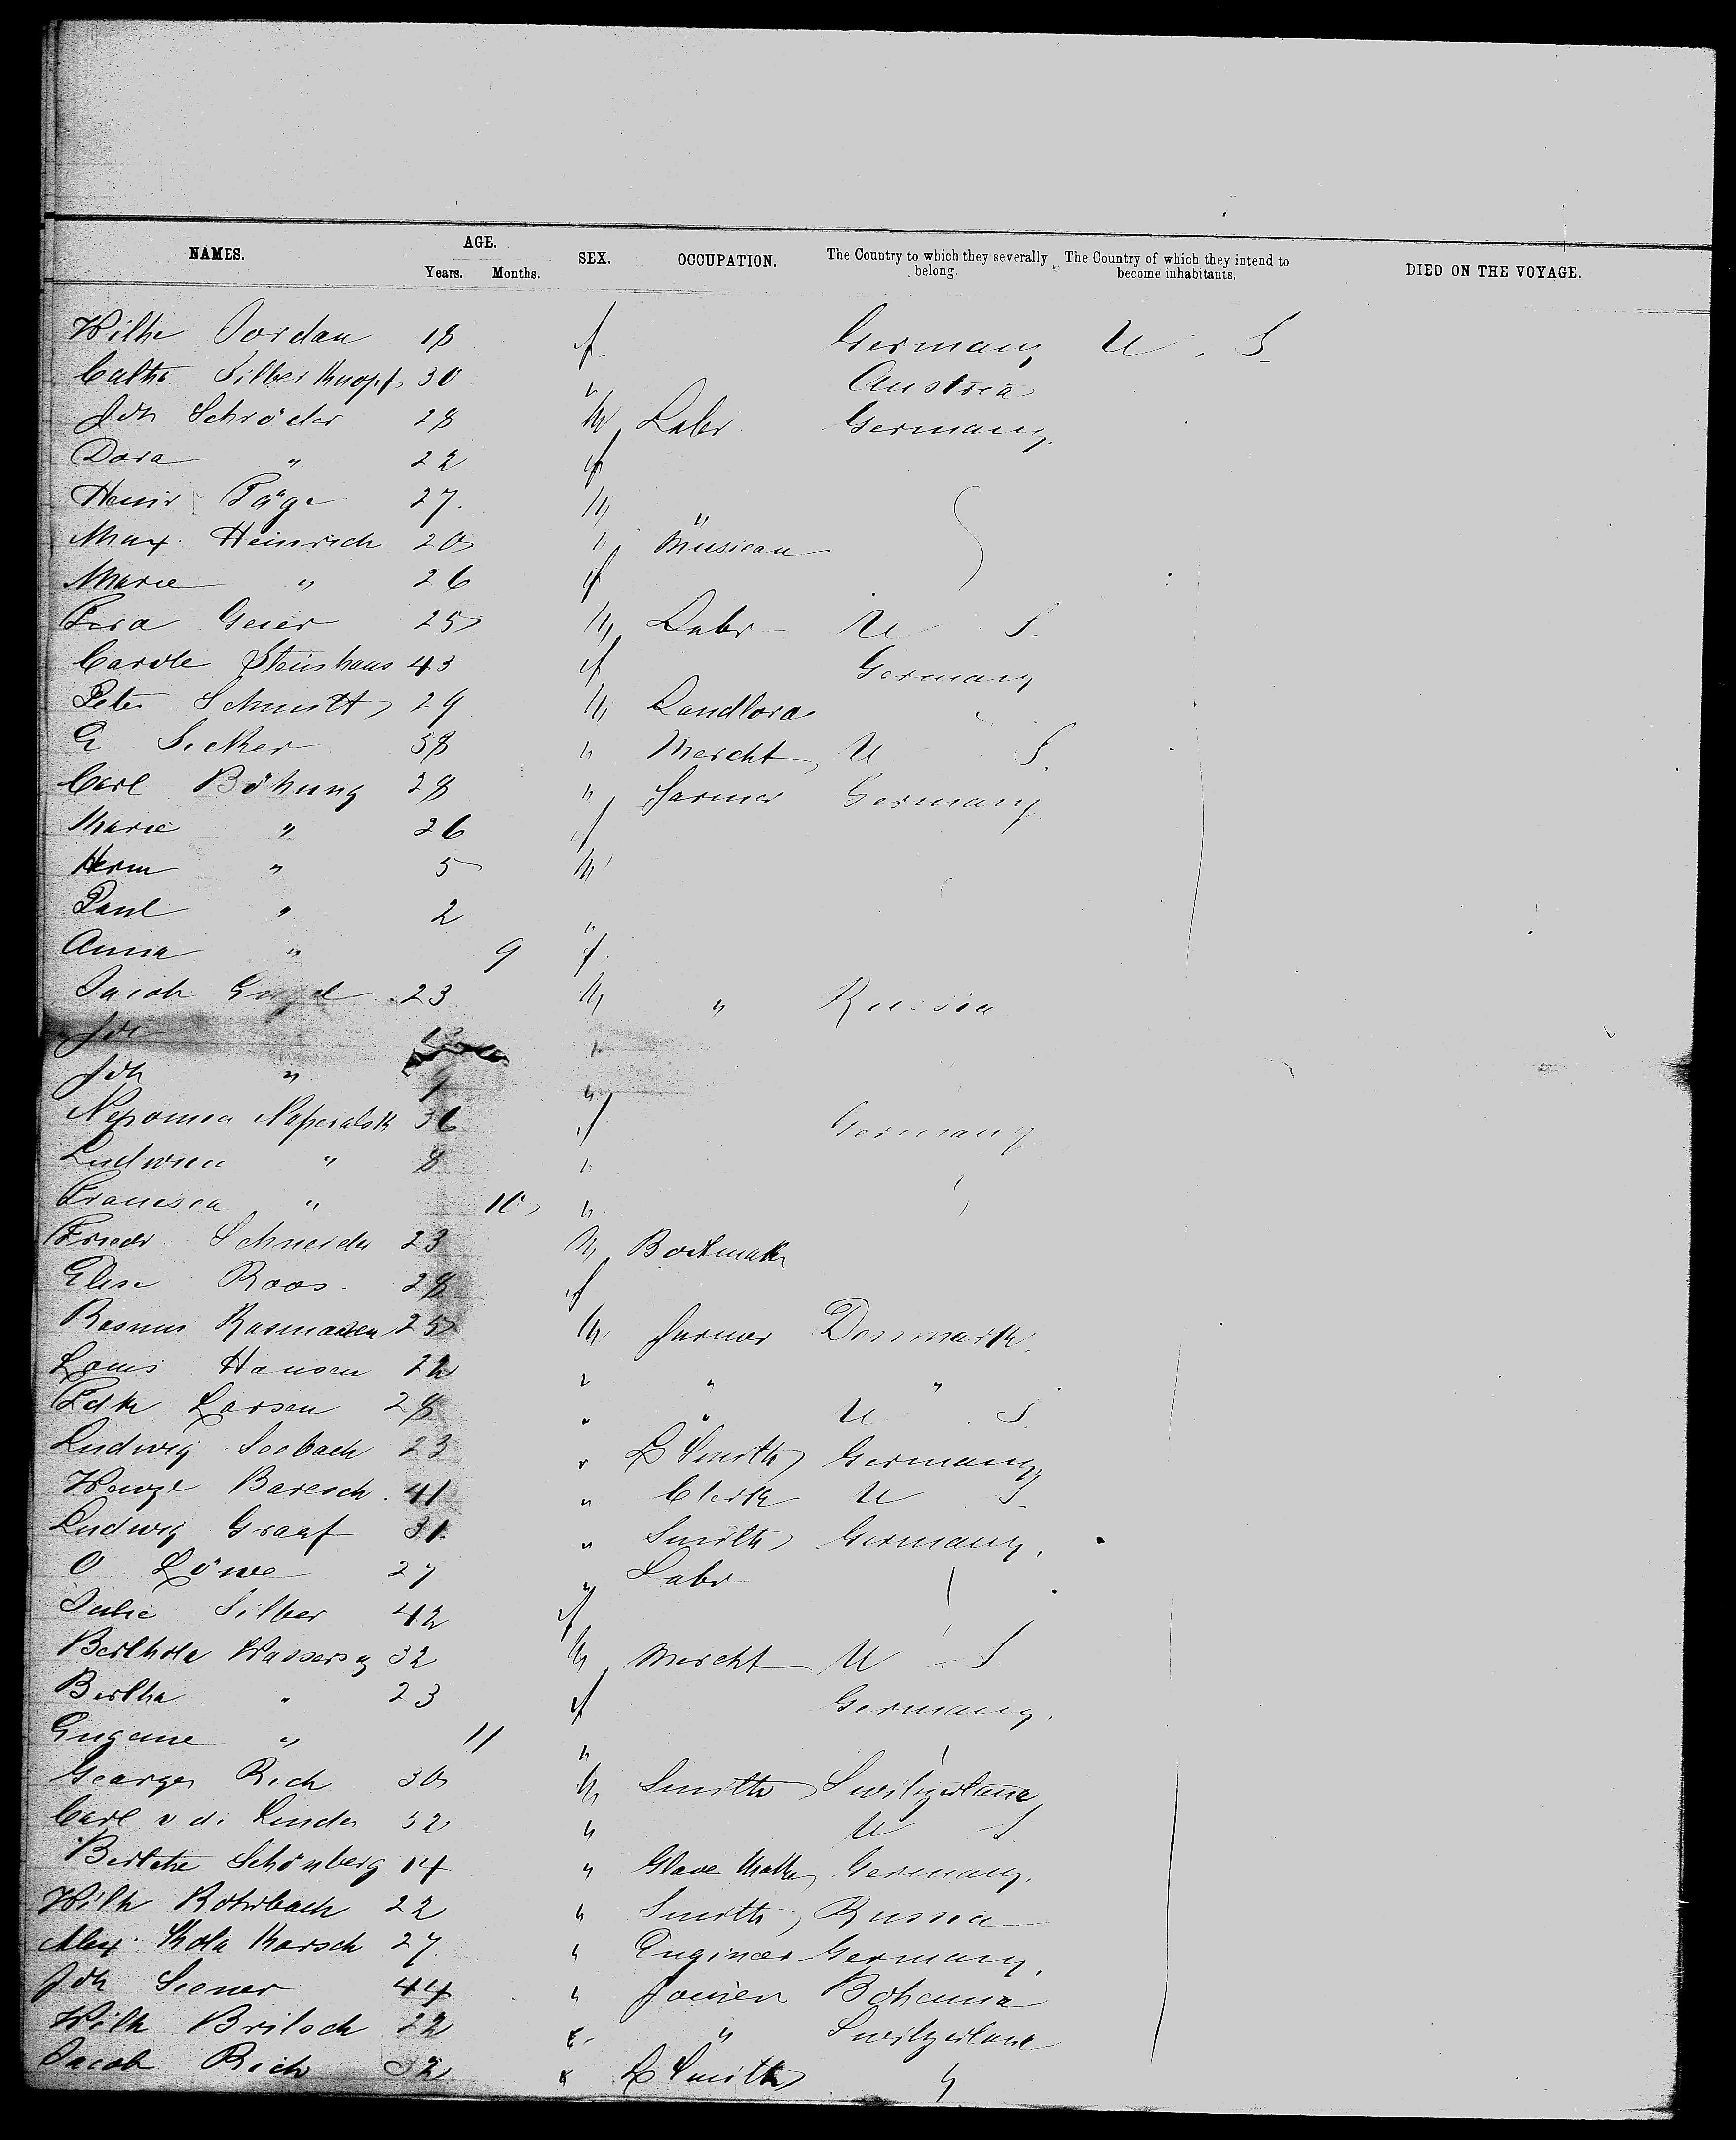 NAMES. AGE. Years. Months. SEX. OCCUPATION. The Country to which they severally belong. The Country of which they intend to become inhabitants. DIED ON THE VOYAGE.
Wilhe Jordan 18 f Germany U. S.
Silberknopf 30 " Austria
Joh Schröder 28 M Labr Germany
Dora " 22 f
Heinr Päge 27. M "
Max Heinrich 20 " Musican
Marie " 26 f
Geier 25 M Labr U S.
Carole Steinhaus 43 f Germany
Peter Schmitt 29 M Landlord
58 " Mercht U S.
Carl Böhning 28 " farmer Germany
Marie " 26 f
Herm " 5 M
Paul " 2 "
Anna " 9 f
Jacob Engel 23 M " Russia
Joh "
Joh " "
36 f Germany
" 8 "
" 10 "
Friedr. Schneider 23 M Bootmakr
Elise Roos. 28 f
Rasmus Rasmassen 25 M farmer Denmark.
Louis Hansen 22 " " "
Larsen 28 " " U. S.
Ludwig Seebach 23 " B Smith Germany
Wenzl Baresch. 41 " Clerk U S.
Ludwig Graaf 31. " Smith Germany.
O Löwe 27 " Labr
Julie Silber 42 f
Berthold 32 M Mercht U. S.
Bertha " 23 f Germany.
Eugenie " 11 "
Georges Rich 30 M Smith Switzerland
Carl v d. Linden 52 " U S.
Schönberg 14 " Glove Germany.
Wilh Rohrbach 22 " Smith Russia
Alex Kola Karsch 27. " Engineer Germany.
Joh 44 " Joiner Bohemia
Wilh Britsch 22 " " Switzerland
Jacob Rich 32 " B Smith "